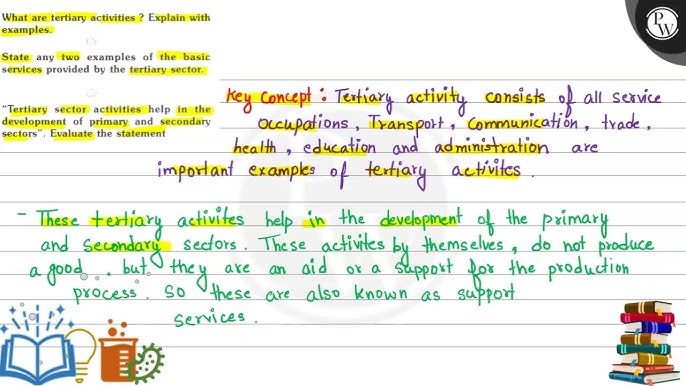 What are tertiary activities ? Explain with
examples.
Or
State any two examples of the basic
services provided by the tertiary sector.
Or
“Tertiary sector activities help in the
development of primary and secondary
sectors”. Evaluate the statement
PW
Key Concept : Tertiary activity consists of all service
occupations, Transport, communication, trade,
health, education and administration are
important examples of tertiary activites .
- These tertiary activites help in the development of the primary
and secondary sectors. These activites by themselves, do not produce
a good . but they are an aid or a support for the production
process . So these are also known as support
services .